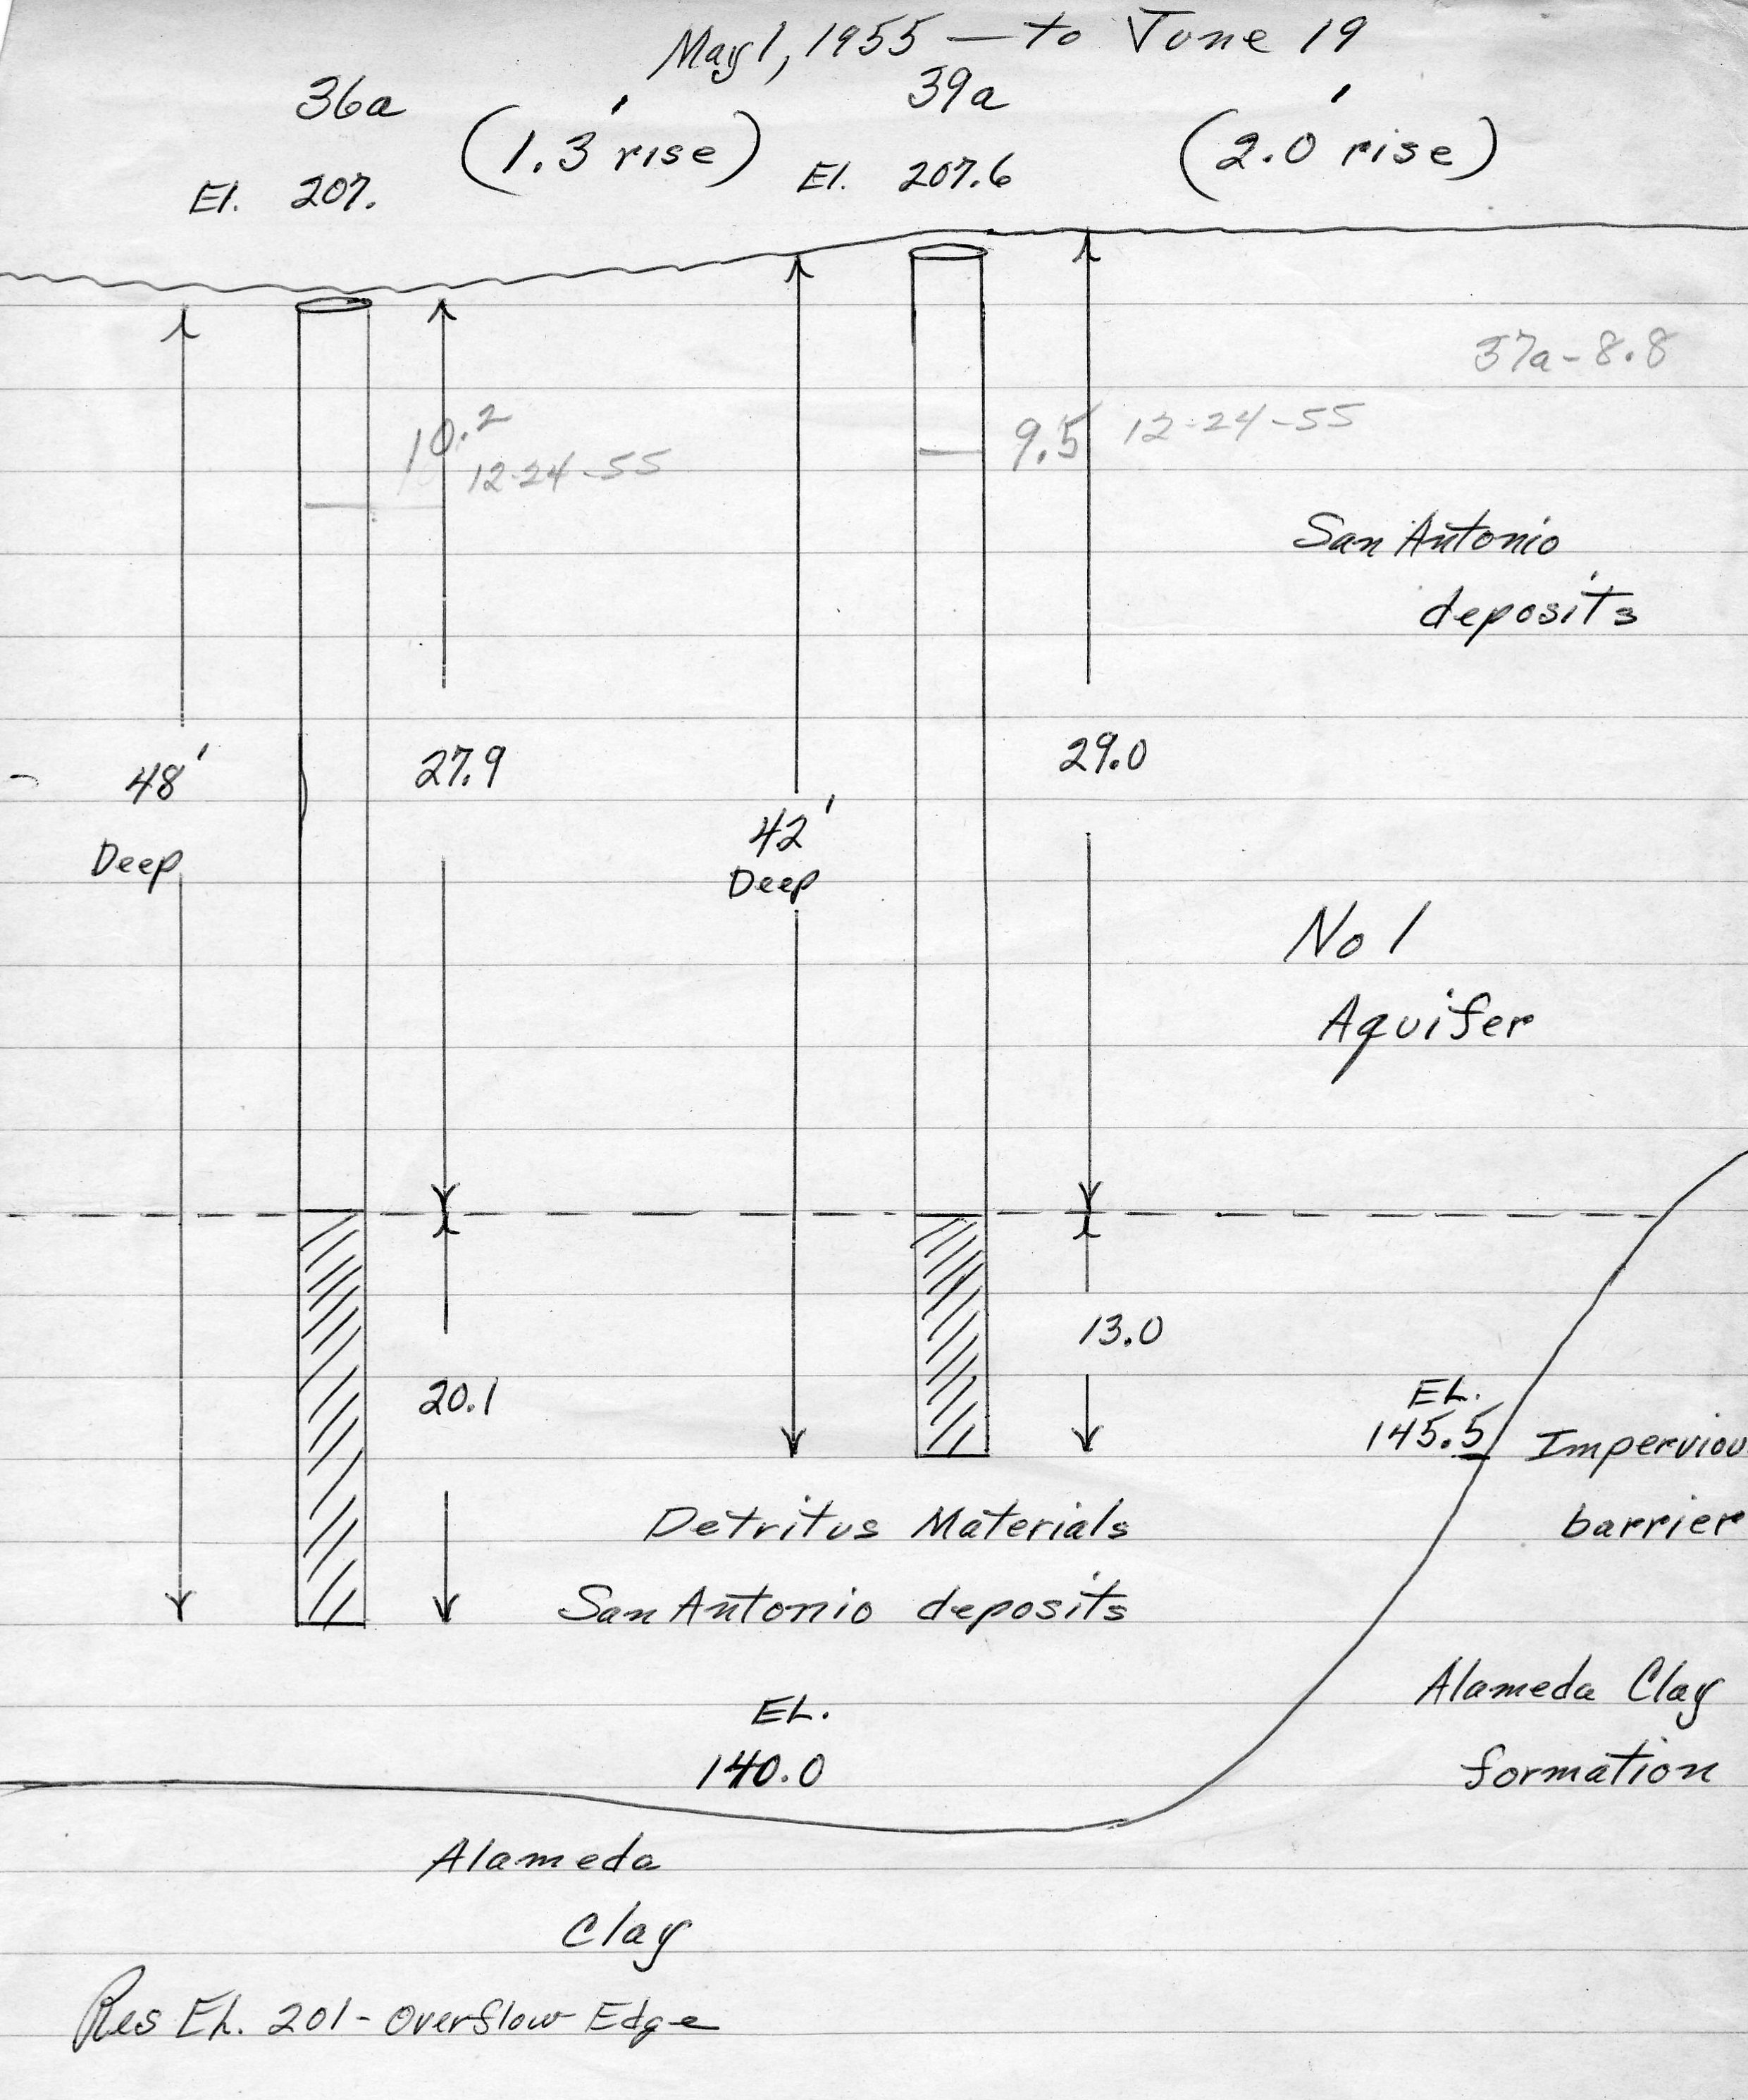 May 1, 1955 — to June 19
36a (1.3' rise) 39a (2.0' rise)
El. 207. El. 207.6
37a - 8.8
10.2 12-24-55
9.5 12-24-55
San Antonio
deposits
48'
Deep
27.9
42'
Deep
29.0
No 1
Aquifer
20.1
13.0
EL.
145.5
Imperviou
barrier
Detritus Materials
San Antonio deposits
EL.
140.0
Alameda Clay
formation
Alameda
Clay
Res EL. 201 - Overflow Edge